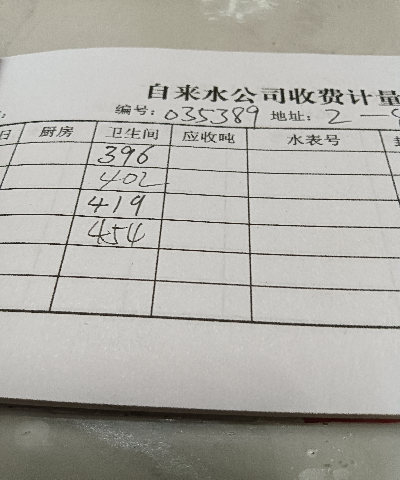 自来水公司收费计量
编号: 035389 地址: 2-
日 厨房 卫生间 应收吨 水表号
396
402
419
454